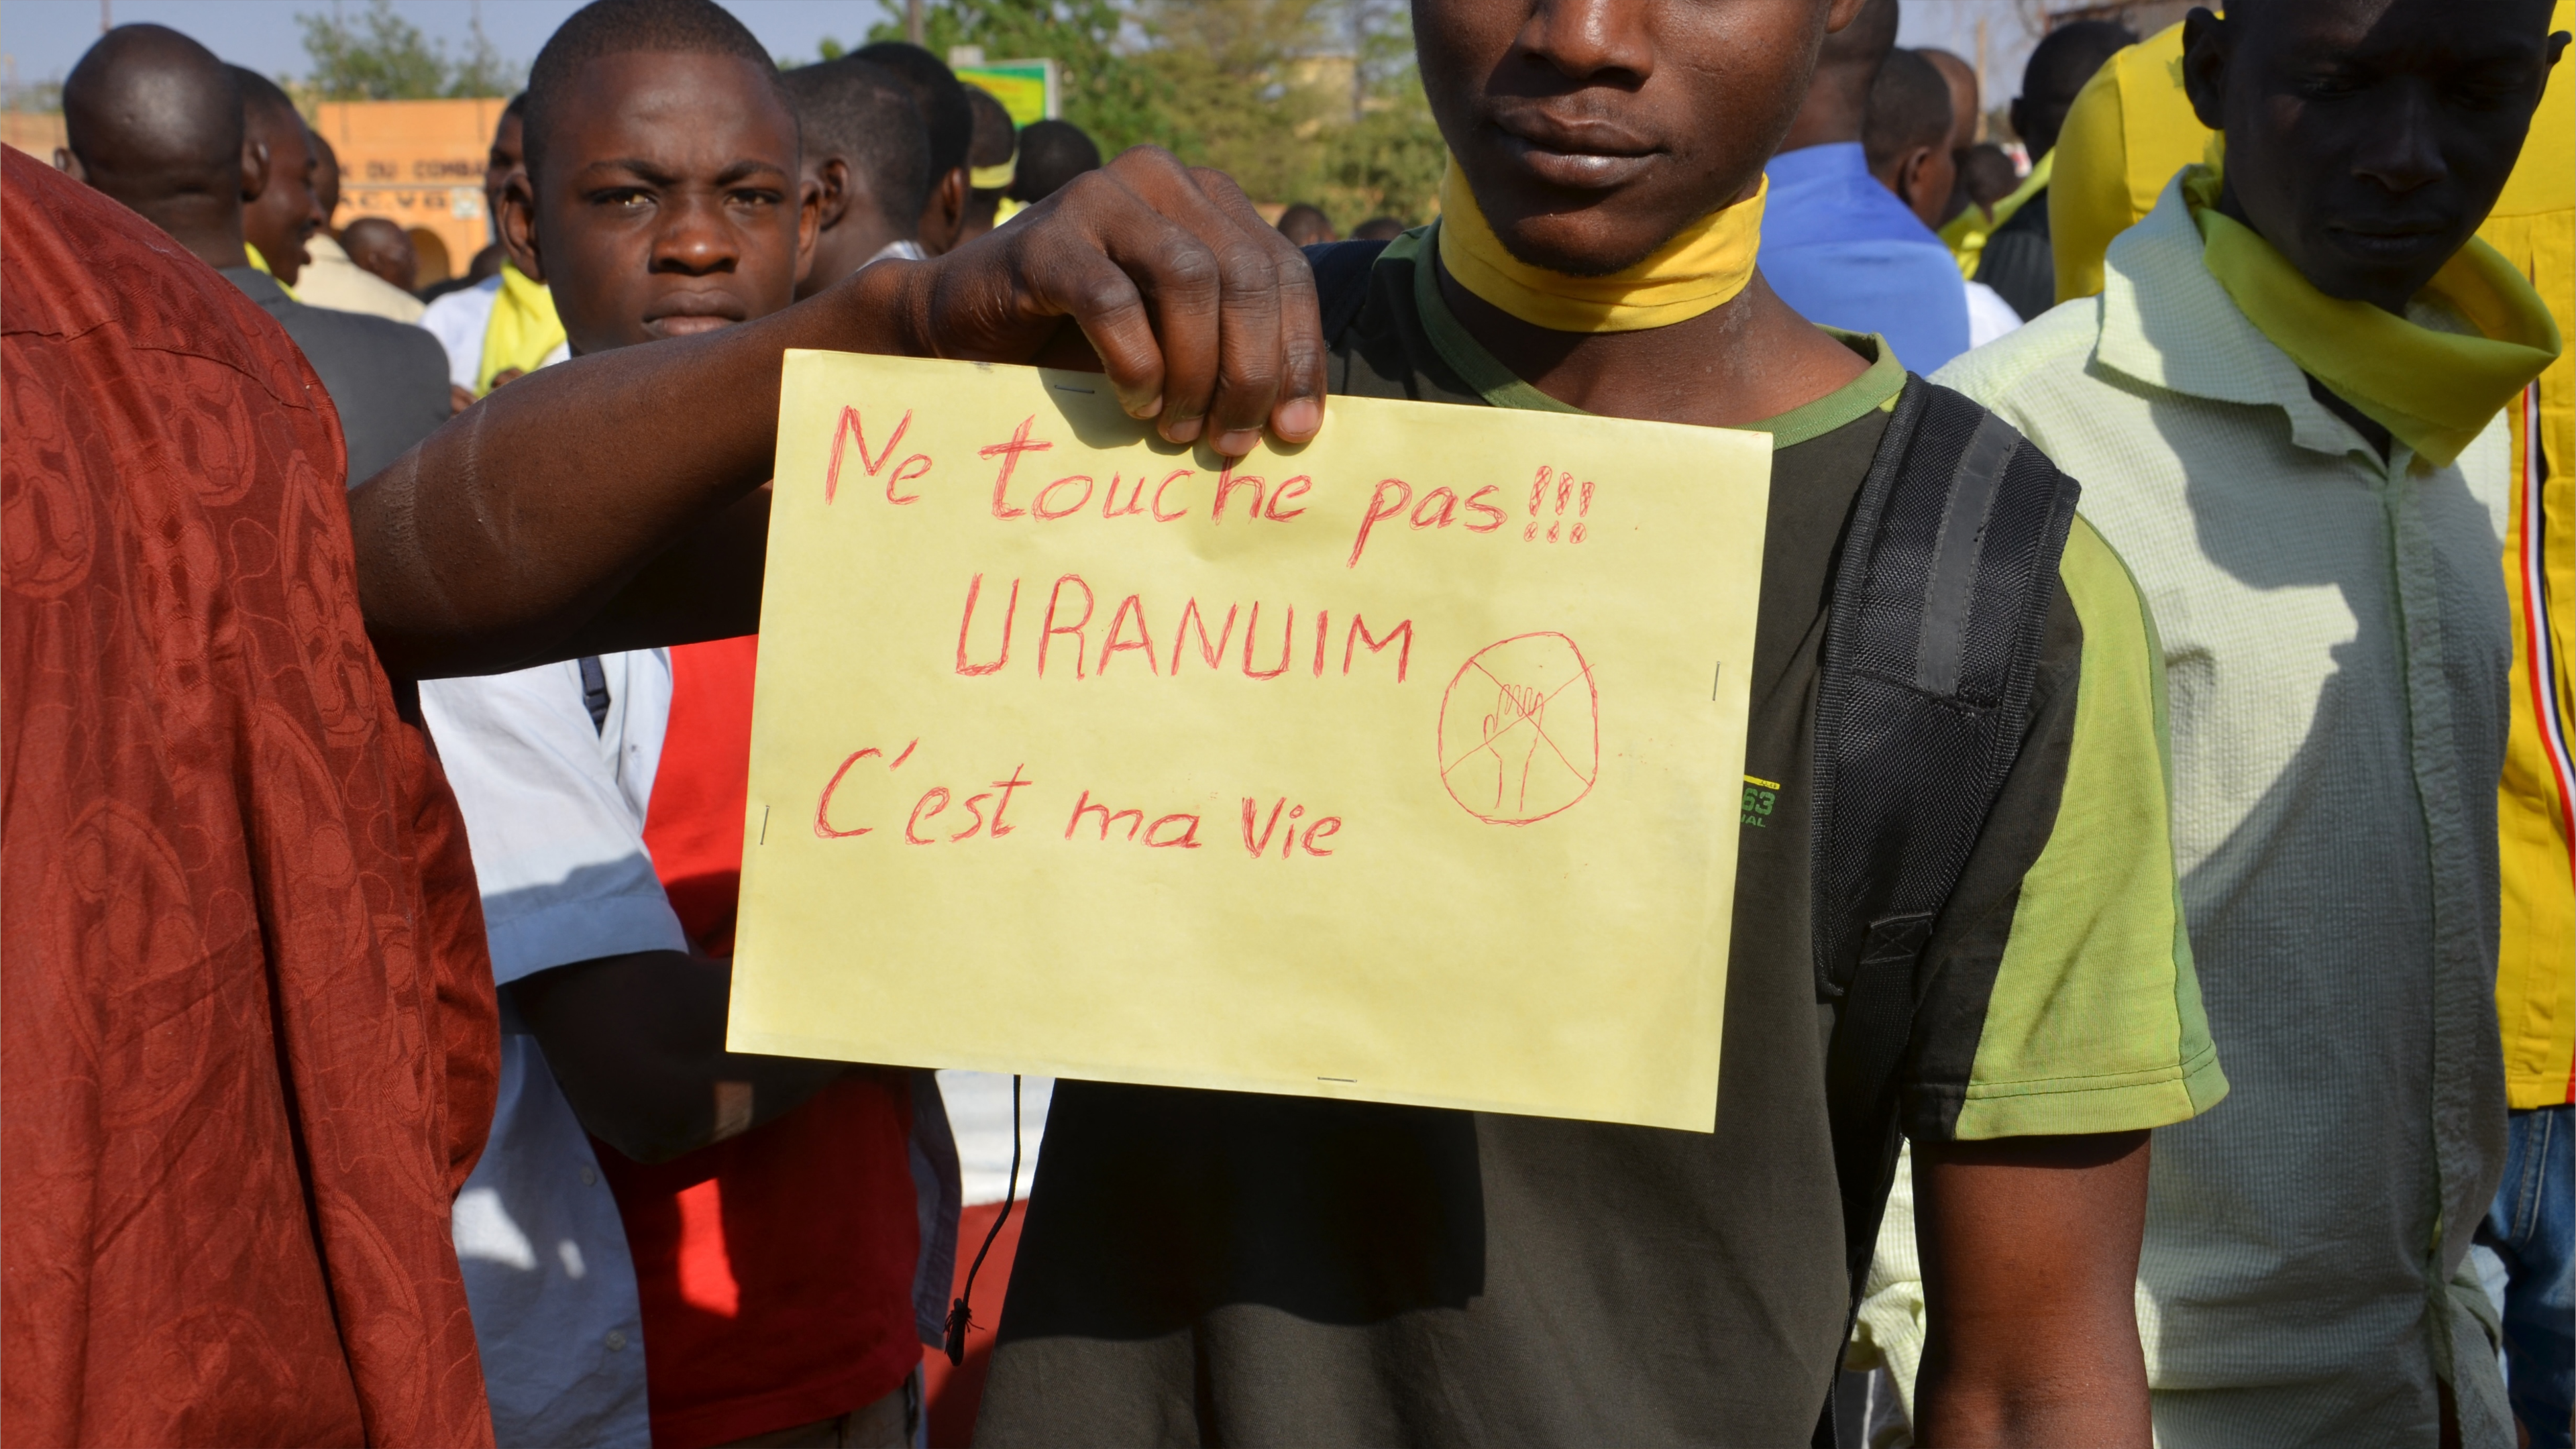 Ne touche pas!!!
URANUIM
C'est ma Vie
DU COMBA
A.C.V.G
63